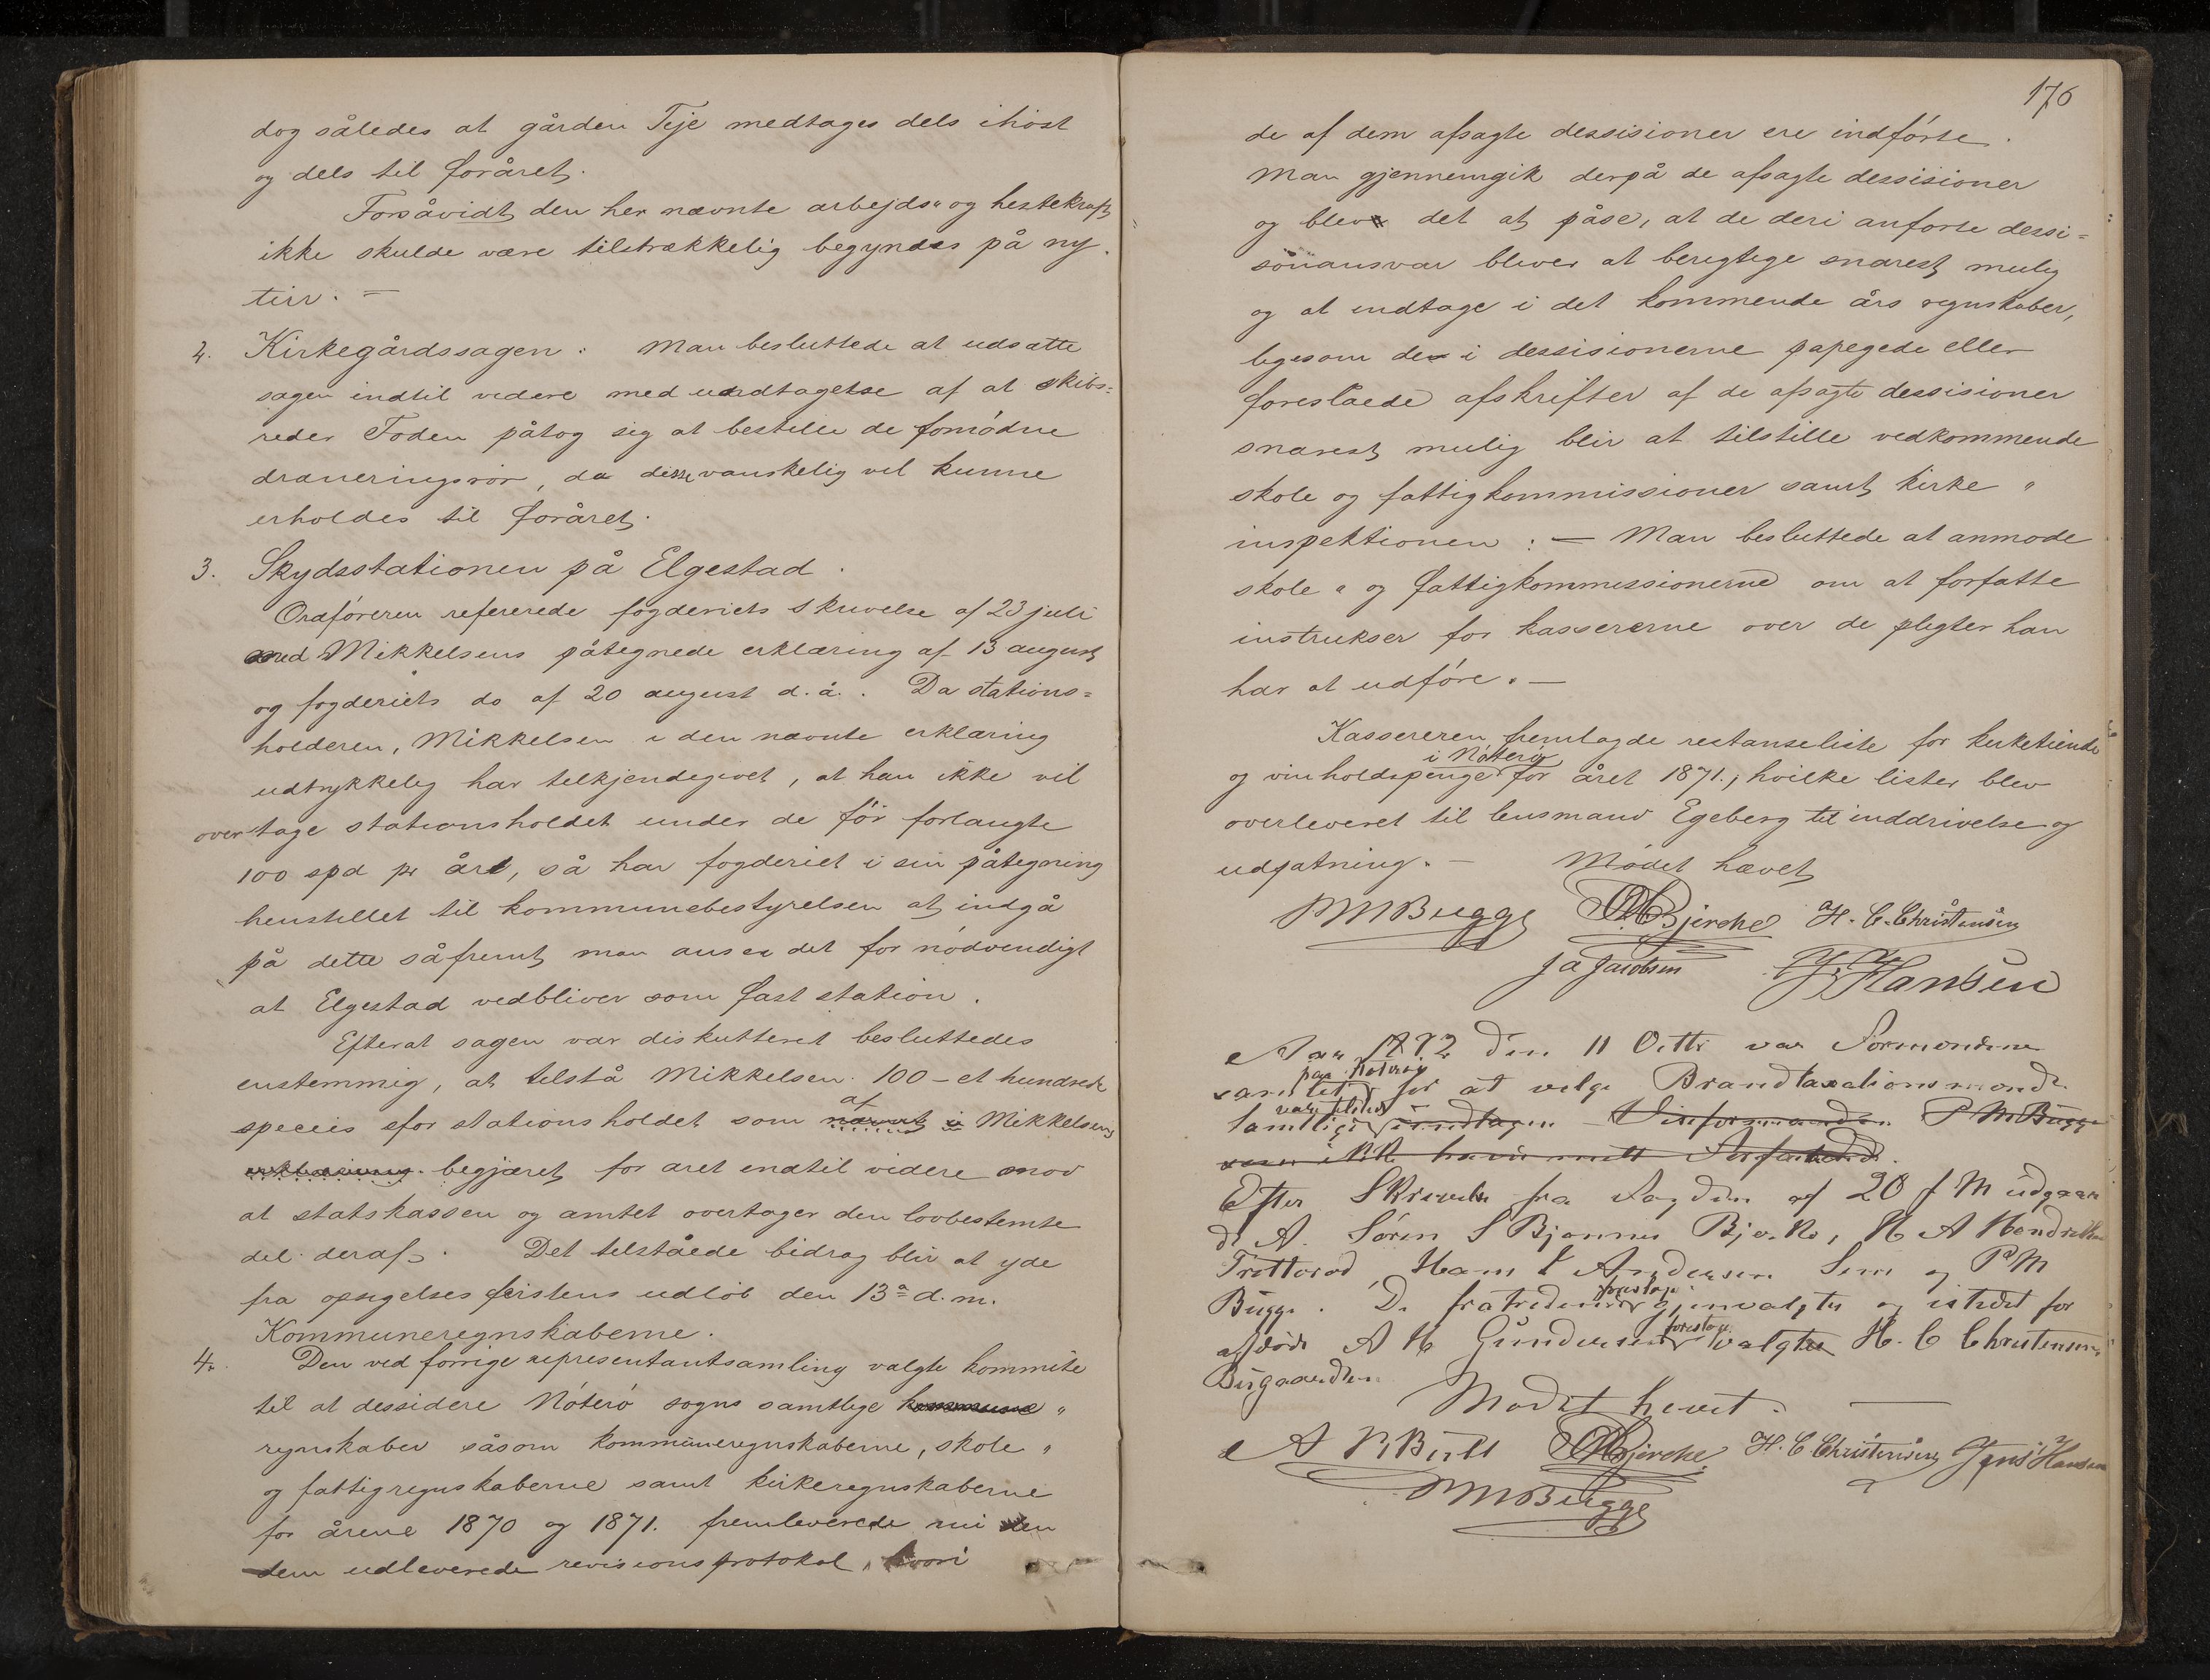 dog således at gården Teje medtages dels ihøst
og dels til foråret.
Forsåvidt den her nævnte arbejds" og hestekraft
ikke skulde være tilstrækkelig begyndes på ny
tur. =
2. Kirkegårdssagen: Man besluttede at udsætte
sagen indtil videre med undtagelse af at skibs=
reder Foden påtog sig at bestille de fornødne
dræneringsrør, da disse vanskelig vil kunne
erholdes til foråret.
3. Skydsstationen på Elgestad.
Ordføreren refererede fogderiets skrivelse af 23 juli
med Mikkelsens påtegnede erklæring af 13 august
og fogderiets do af 20 august d. å. Da stations=
holderen, Mikkelsen i den nævnte erklæring
udtrykkelig har tilkjendegivet, at han ikke vil
overtage stationsholdet under de før forlangte
100 spd pr året, så har fogderiet i sin påtegning
henstillet til kommunebestyrelsen at indgå
på dette såfremt man anser det for nødvendigt
at Elgestad vedbliver som fast station.
Efterat sagen var diskutteret besluttedes
enstemmig, at tilstå Mikkelsen 100 - et hundrede
species for stationsholdet som af nævnt i Mikkelsens
erklæring begjæret for året indtil videre mod
at statskassen og amtet overtager den lovbestemte
del deraf. Det tilståede bidrag blir at yde
fra opsigelses fristens udløb den 13de d. m.
Kommuneregnskaberne.
4. Den ved forrige representantsamling valgte kommite
til at dessidere Nøterø sogns samtlige kommune "
regnskaber såsom kommuneregnskaberne, skole "
og fattigregnskaberne samt kirkeregnskaberne
for årene 1870 og 1871. fremleverede nu den
dem udleverede revisionsprotokol, hvori
176
de af dem afsagte dessisioner ere indførte.
Man gjennemgik derpå de afsagte dessisioner
og blev det at påse, at de deri anførte dessi=
sionansvar bliver at berigtige snarest mulig
og at indtage i det kommende års regnskaber,
ligesom de i dessisionerne papegede eller
foreslåede afskrifter af de afsagte dessisioner
snarest mulig blir at tilstille vedkommende
skole og fattigkommissioner samt kirke "
inspektionen: — Man besluttede at anmode
skole " og fattigkommissionerne om at forfatte
instrukser for kassererne over de pligter han
har at udføre. —
Kassereren fremlagde restanseliste for kirketiende
og vinholdspenge i Nøterø for året 1871, hvilke lister blev
overleveret til lensmand Egeberg til inddrivelse og
udpatning. — Mødet hævet
P M Bugge O Bjerche H. C. Christensen
J A Jacobsen J. Hansen
Aar 1872 den 11 Octbr var Formændene
samlet paa Nøterøy for at velge Brandtaxationsmænd.
Samtlige var tilstede undtagen Viseformanden P M Bugge
som ikke havde meldt Forfald.
Efter Skrivelse fra Fogden af 20 f M udgaar
d. A. Søren S Bjønnes Bjerke, H A Hendriksen
Trettorød, Hans Andersen Sem og P M
Bugge. De fratredende foreslaaes gjenvalgte og istedet for
afdøde A H Gundersen foreslaaes valgte H. C Christensen
Bugaarden.
Mødet hevet.
A B Bull O Bjerche H. C. Christensen Jens Hansen
P M Bugge